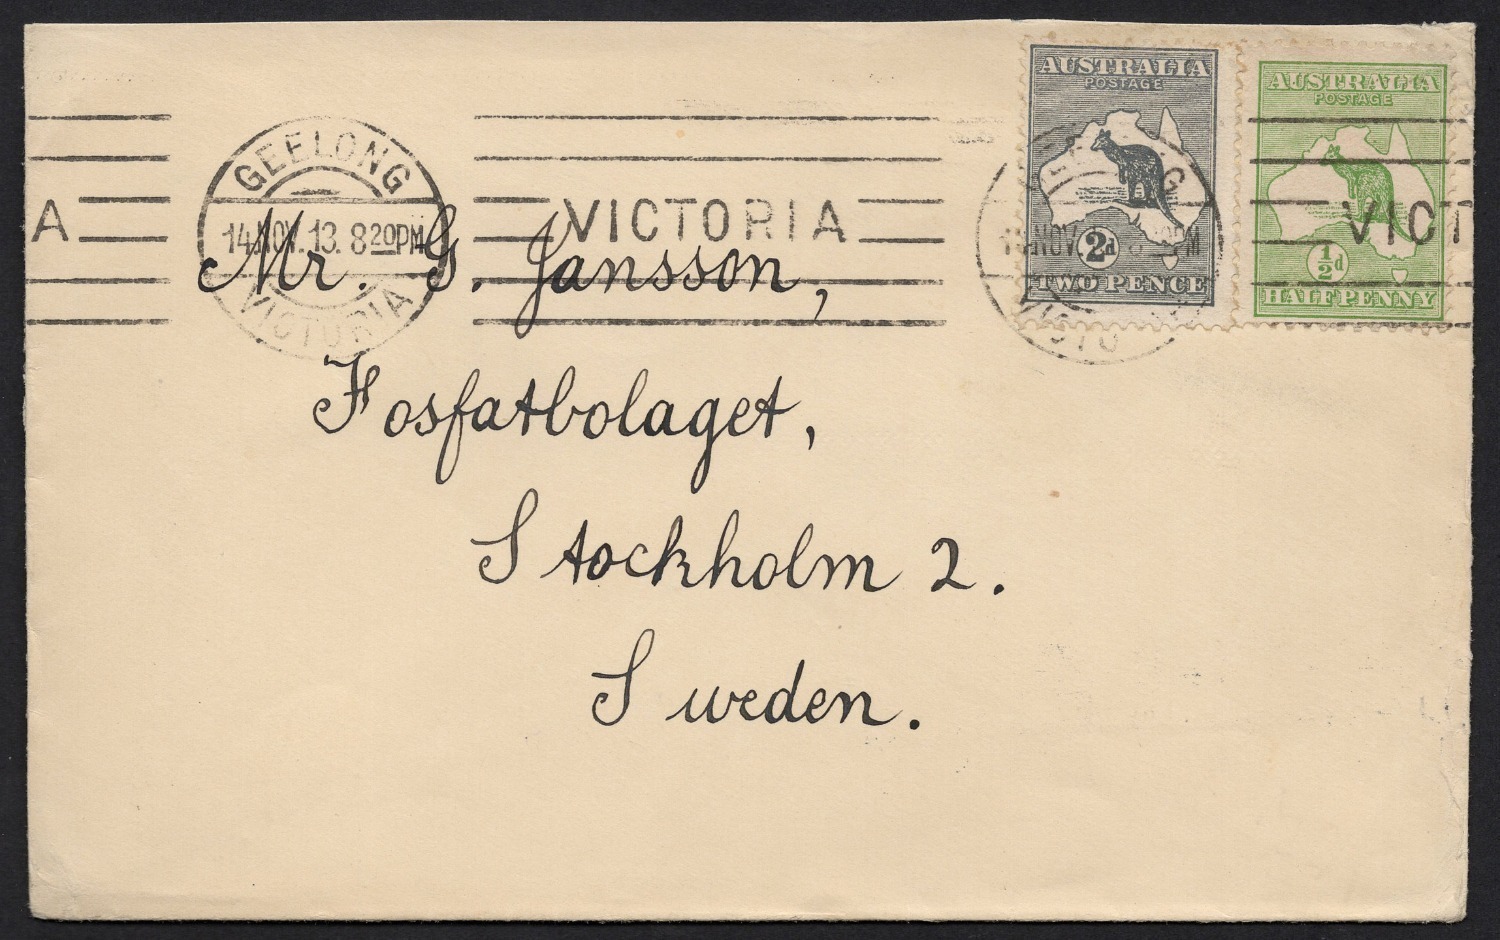 AUSTRALIA
POSTAGE
2d
TWO PENCE
AUSTRALIA
POSTAGE
½d
HALFPENNY
A
GEELONG
14 NOV. 13. 8 20 PM
VICTORIA
VICTORIA
VICT
Mr. G. Jansson,
Fosfatbolaget,
Stockholm 2.
Sweden.